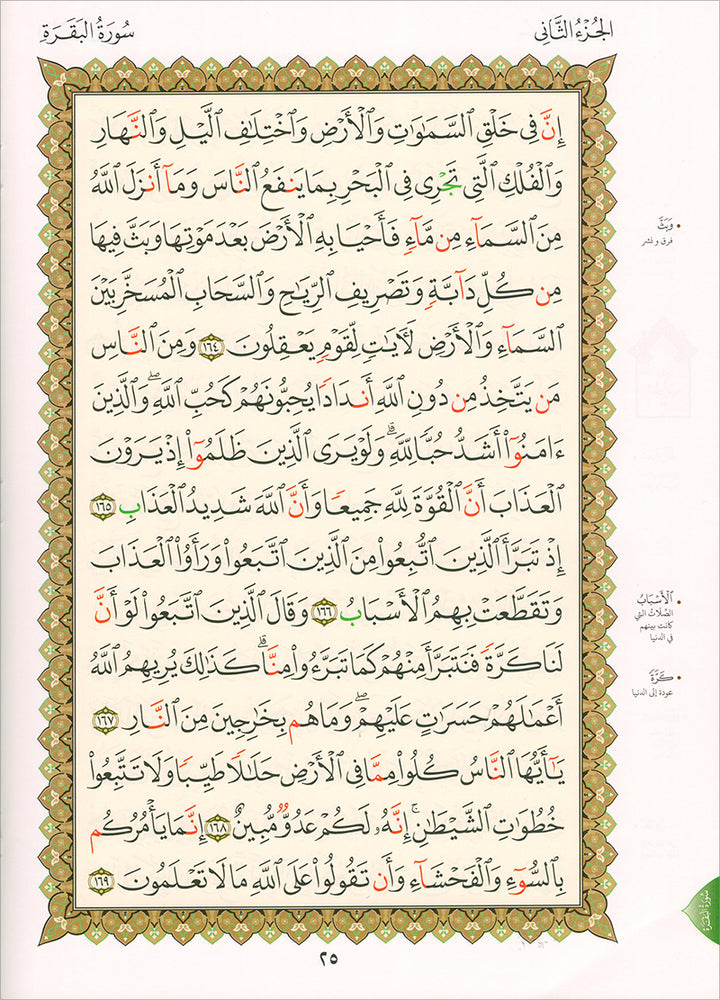 الجُزْءُ الثَّانِى
سُورَةُ البَقَرَةِ
إِنَّ فِى خَلْقِ ٱلسَّمَـٰوَٰتِ وَٱلْأَرْضِ وَٱخْتِلَـٰفِ ٱلَّيْلِ وَٱلنَّهَارِ
وَٱلْفُلْكِ ٱلَّتِى تَجْرِى فِى ٱلْبَحْرِ بِمَا يَنفَعُ ٱلنَّاسَ وَمَآ أَنزَلَ ٱللَّهُ
مِنَ ٱلسَّمَآءِ مِن مَّآءٍ فَأَحْيَا بِهِ ٱلْأَرْضَ بَعْدَ مَوْتِهَا وَبَثَّ فِيهَا
مِن كُلِّ دَآبَّةٍ وَتَصْرِيفِ ٱلرِّيَـٰحِ وَٱلسَّحَابِ ٱلْمُسَخَّرِ بَيْنَ
ٱلسَّمَآءِ وَٱلْأَرْضِ لَـَٔايَـٰتٍ لِّقَوْمٍ يَعْقِلُونَ ١٦٤ وَمِنَ ٱلنَّاسِ
مَن يَتَّخِذُ مِن دُونِ ٱللَّهِ أَندَادًا يُحِبُّونَهُمْ كَحُبِّ ٱللَّهِ ۖ وَٱلَّذِينَ
ءَامَنُوٓا۟ أَشَدُّ حُبًّا لِّلَّهِ ۗ وَلَوْ يَرَى ٱلَّذِينَ ظَلَمُوٓا۟ إِذْ يَرَوْنَ
ٱلْعَذَابَ أَنَّ ٱلْقُوَّةَ لِلَّهِ جَمِيعًا وَأَنَّ ٱللَّهَ شَدِيدُ ٱلْعَذَابِ ١٦٥
إِذْ تَبَرَّأَ ٱلَّذِينَ ٱتُّبِعُوا۟ مِنَ ٱلَّذِينَ ٱتَّبَعُوا۟ وَرَأَوُا۟ ٱلْعَذَابَ
وَتَقَطَّعَتْ بِهِمُ ٱلْأَسْبَابُ ١٦٦ وَقَالَ ٱلَّذِينَ ٱتَّبَعُوا۟ لَوْ أَنَّ
لَنَا كَرَّةً فَنَتَبَرَّأَ مِنْهُمْ كَمَا تَبَرَّءُوا۟ مِنَّا ۗ كَذَٰلِكَ يُرِيهِمُ ٱللَّهُ
أَعْمَـٰلَهُمْ حَسَرَٰتٍ عَلَيْهِمْ ۖ وَمَا هُم بِخَـٰرِجِينَ مِنَ ٱلنَّارِ ١٦٧
يَـٰٓأَيُّهَا ٱلنَّاسُ كُلُوا۟ مِمَّا فِى ٱلْأَرْضِ حَلَـٰلًا طَيِّبًا وَلَا تَتَّبِعُوا۟
خُطُوَٰتِ ٱلشَّيْطَـٰنِ ۚ إِنَّهُۥ لَكُمْ عَدُوٌّ مُّبِينٌ ١٦٨ إِنَّمَا يَأْمُرُكُم
بِٱلسُّوٓءِ وَٱلْفَحْشَآءِ وَأَن تَقُولُوا۟ عَلَى ٱللَّهِ مَا لَا تَعْلَمُونَ ١٦٩
• وَبَثَّ
فرق و نشر
• ٱلْأَسْبَابُ
الصِّلاتُ التي
كانت بينهم
في الدنيا
• كَرَّةً
عودة إلى الدنيا
سُورَةُ البَقَرَةِ
٢٥